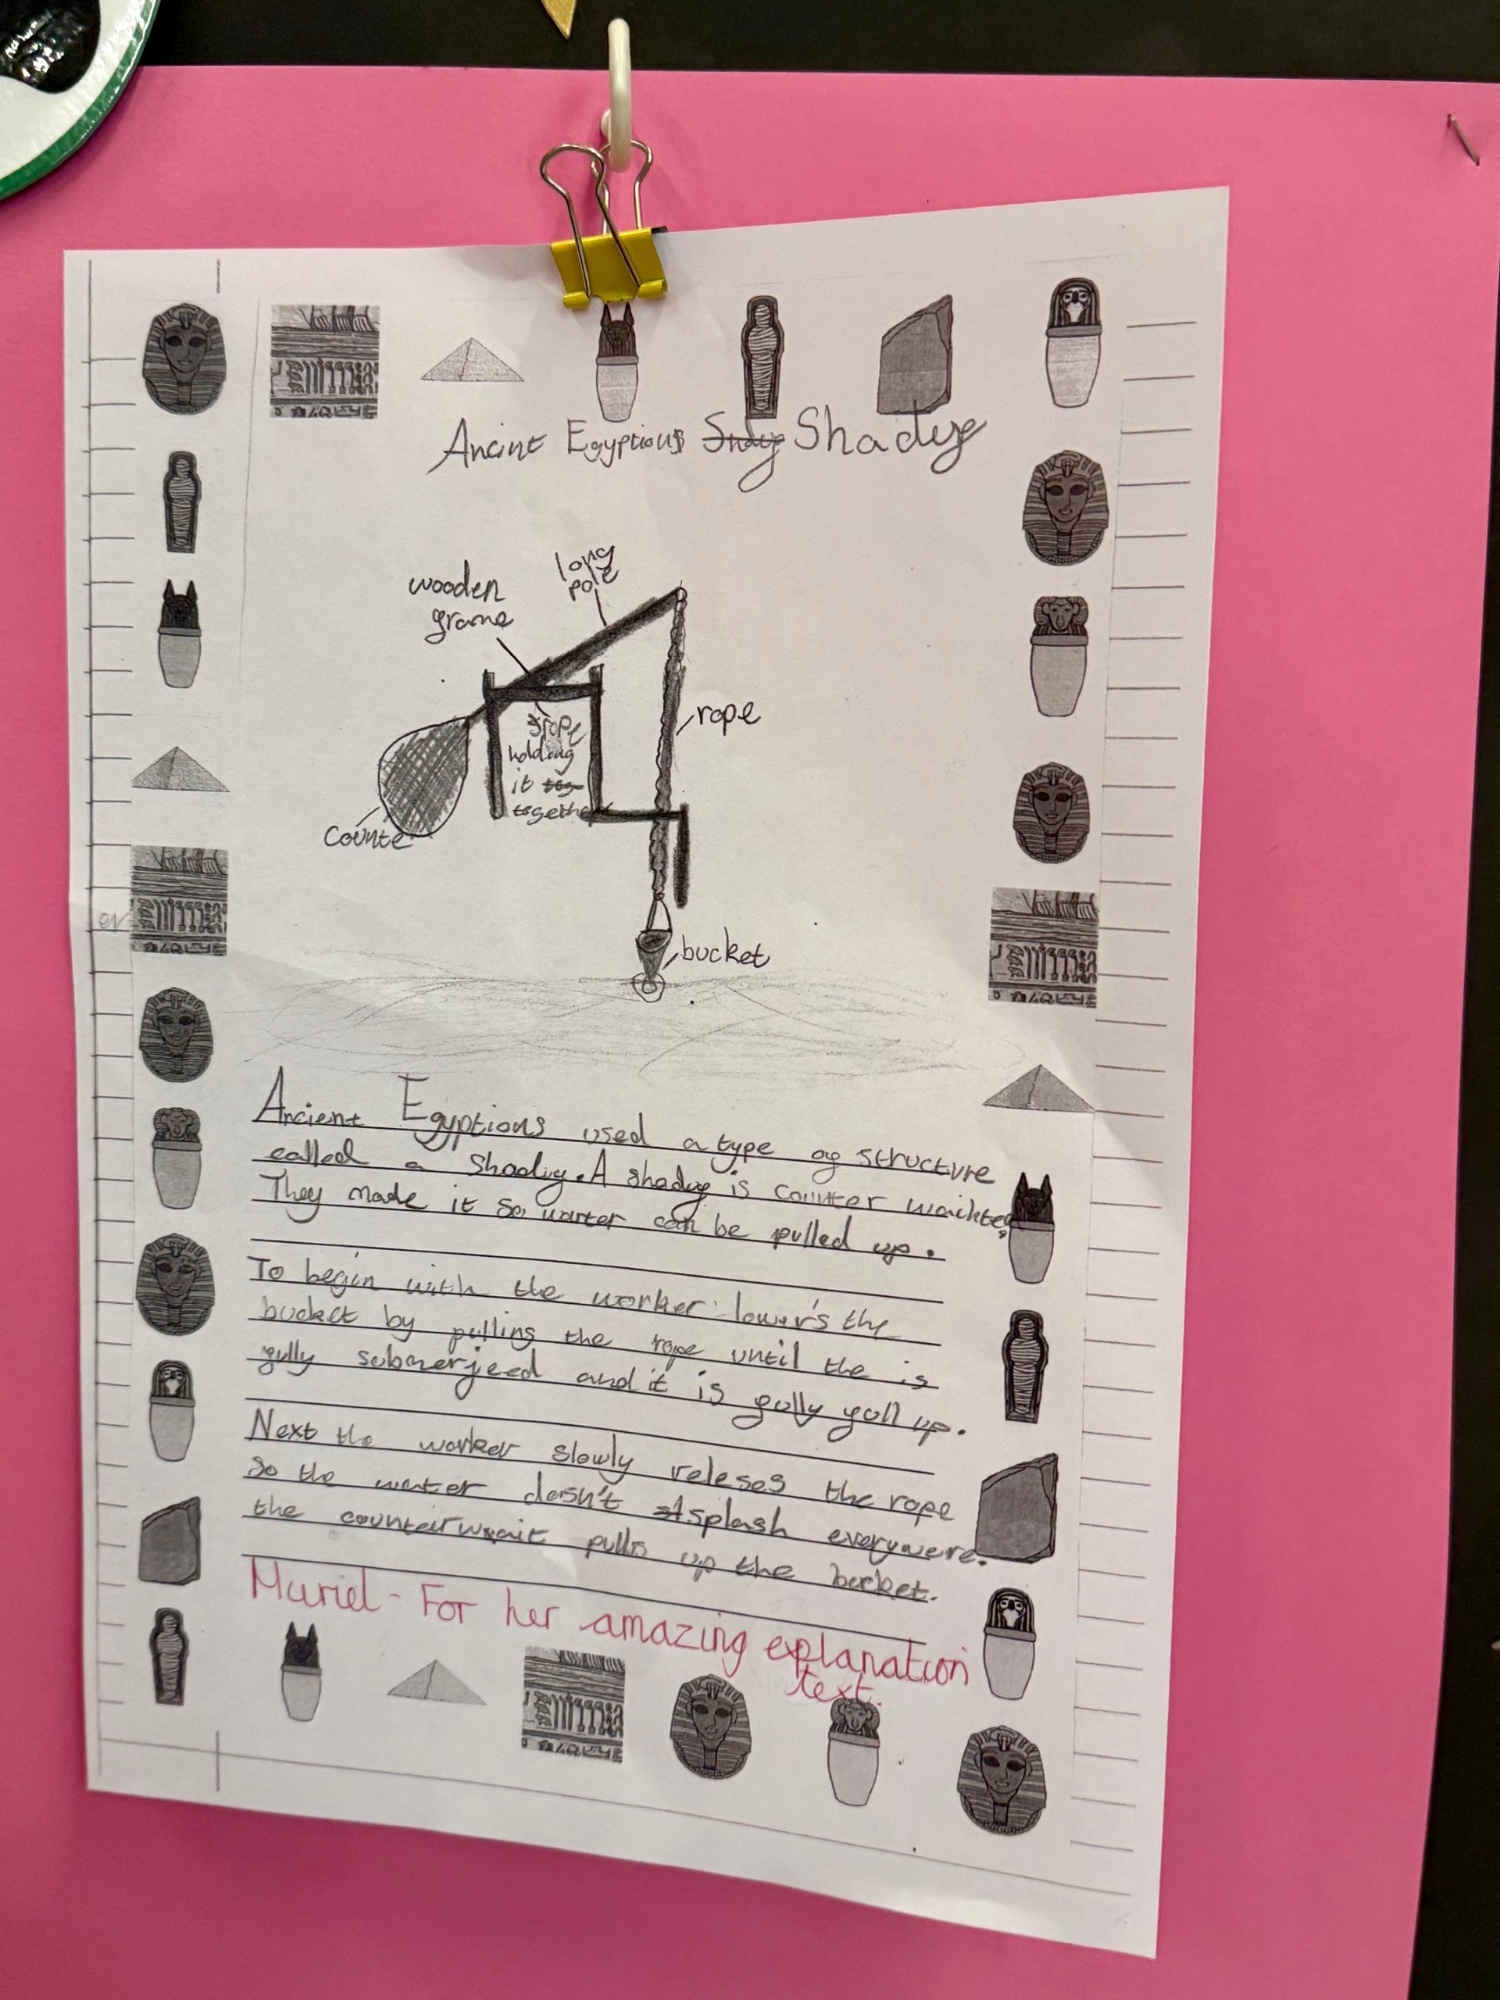 Ancint Egyptions Shadye
long
pole
wooden
grame
rope
holding
it
together
rope
counte
er
bucket
Ancient Egyptions used a type og structure
called a Shaduy. A shadye is counter waikte,
They made it so warter can be pulled up.
To begin with the worker lower's the
bucket by pulling the rope until the is
gully submerjeed and it is gully goll up.
Next the worker slowly releses the rope
so the water dosn't splash everywere.
the counterwait pulls up the bucket.
Muriel - For her amazing explanation
text.